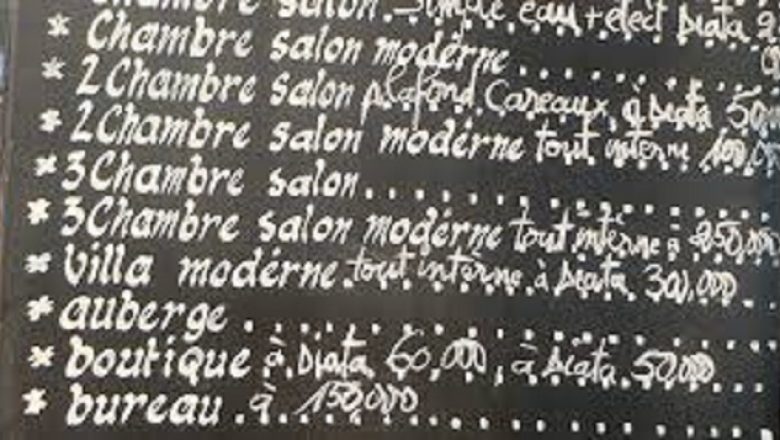 Chambre salon. Simple eau + elect Diata
* Chambre salon modérne
* 2 Chambre salon plafond Careaux, à Diata 50,
* 2 Chambre salon modérne tout interne 100,00
* 3 Chambre salon
* 3 Chambre salon modérne tout intèrne à 250,000
* Villa modérne. tout intèrne. à Diata. 300,000.
* auberge
* boutique à Diata 60,000, à Diata. 50,000
* bureau. à 150,000